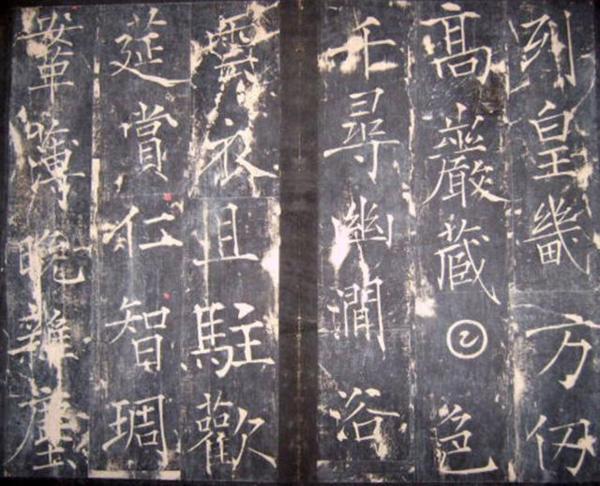 列皇畿万仞
高巖藏𡆠色
千尋幽澗浴
雲衣且駐歡
莚賞仁智琱
鞌薄晚雜塵